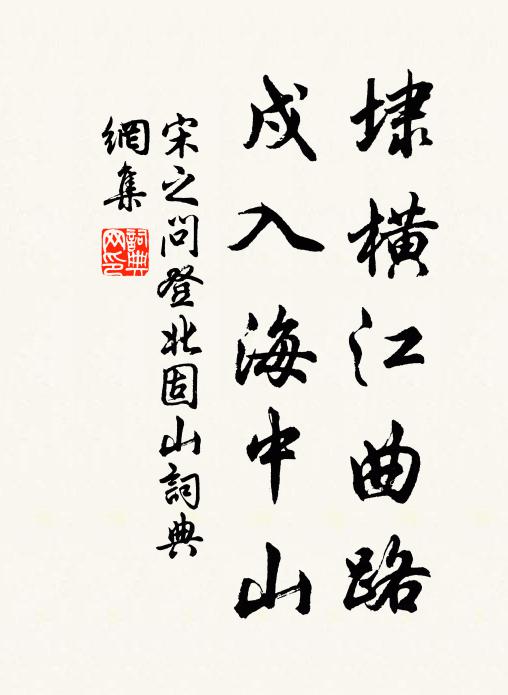 埭橫江曲路
戍入海中山
宋之問登北固山詞典
網集
詞典
网印